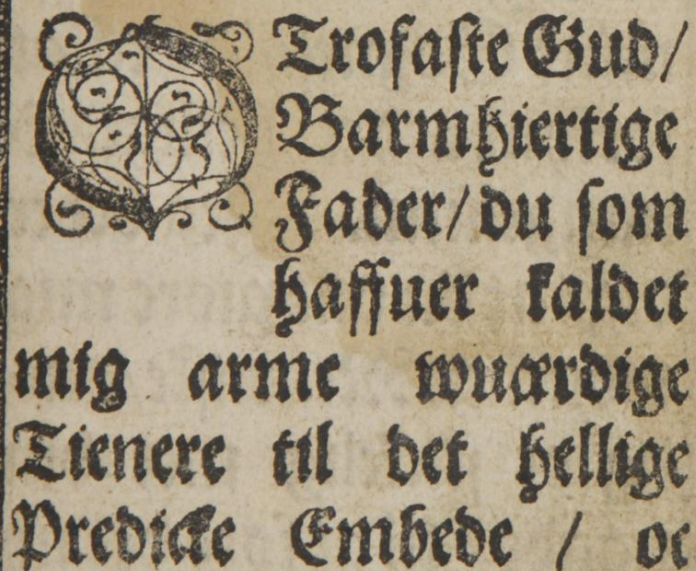 O Trofaste Gud/
Barmhiertige
Fader/ du som
haffuer kaldet
mig arme wuærdige
Tienere til det hellige
Predicke Embede / oc